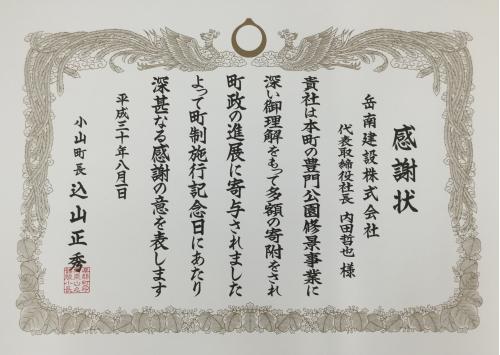 感謝状
岳南建設株式会社
代表取締役社長 内田哲也 様
貴社は本町の豊門公園修景事業に
深い御理解をもって多額の寄附をされ
町政の進展に寄与されました
よって町制施行記念日にあたり
深甚なる感謝の意を表します
平成三十年八月一日
小山町長 込山正秀